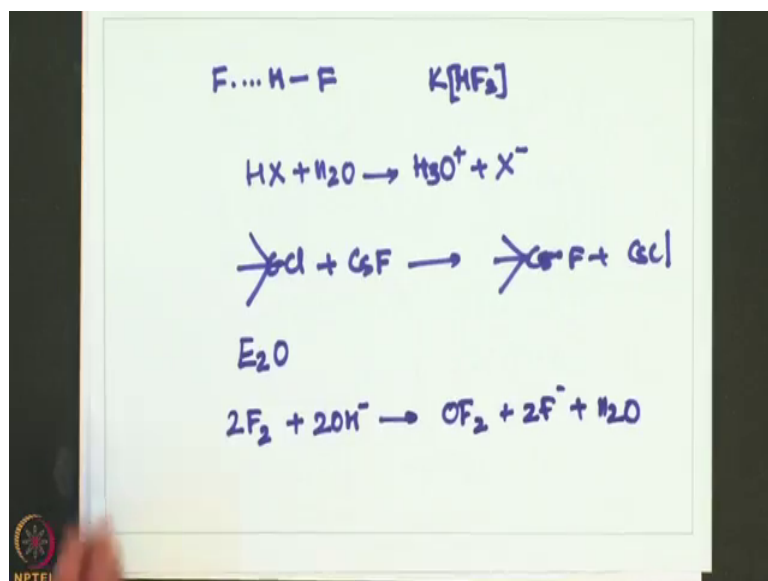 F....H-F K[HF₂]
HX + H₂O → H₃O⁺ + X⁻
Cl + CsF → F + CsCl
E₂O
2F₂ + 2OH⁻ → OF₂ + 2F⁻ + H₂O
NPTEL